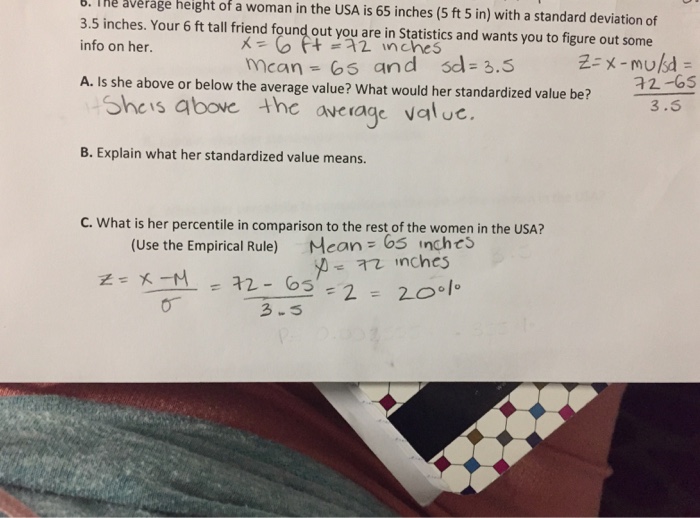 6. The average height of a woman in the USA is 65 inches (5 ft 5 in) with a standard deviation of
3.5 inches. Your 6 ft tall friend found out you are in Statistics and wants you to figure out some
info on her.
X = 6 ft = 72 inches
mean = 65 and sd = 3.5
Z = X - mu/sd =
72-65
3.5
A. Is she above or below the average value? What would her standardized value be?
She is above the average value.
B. Explain what her standardized value means.
C. What is her percentile in comparison to the rest of the women in the USA?
(Use the Empirical Rule)
Mean = 65 inches
X = 72 inches
Z = X - M = 72 - 65 = 2 = 20%
σ 3.5